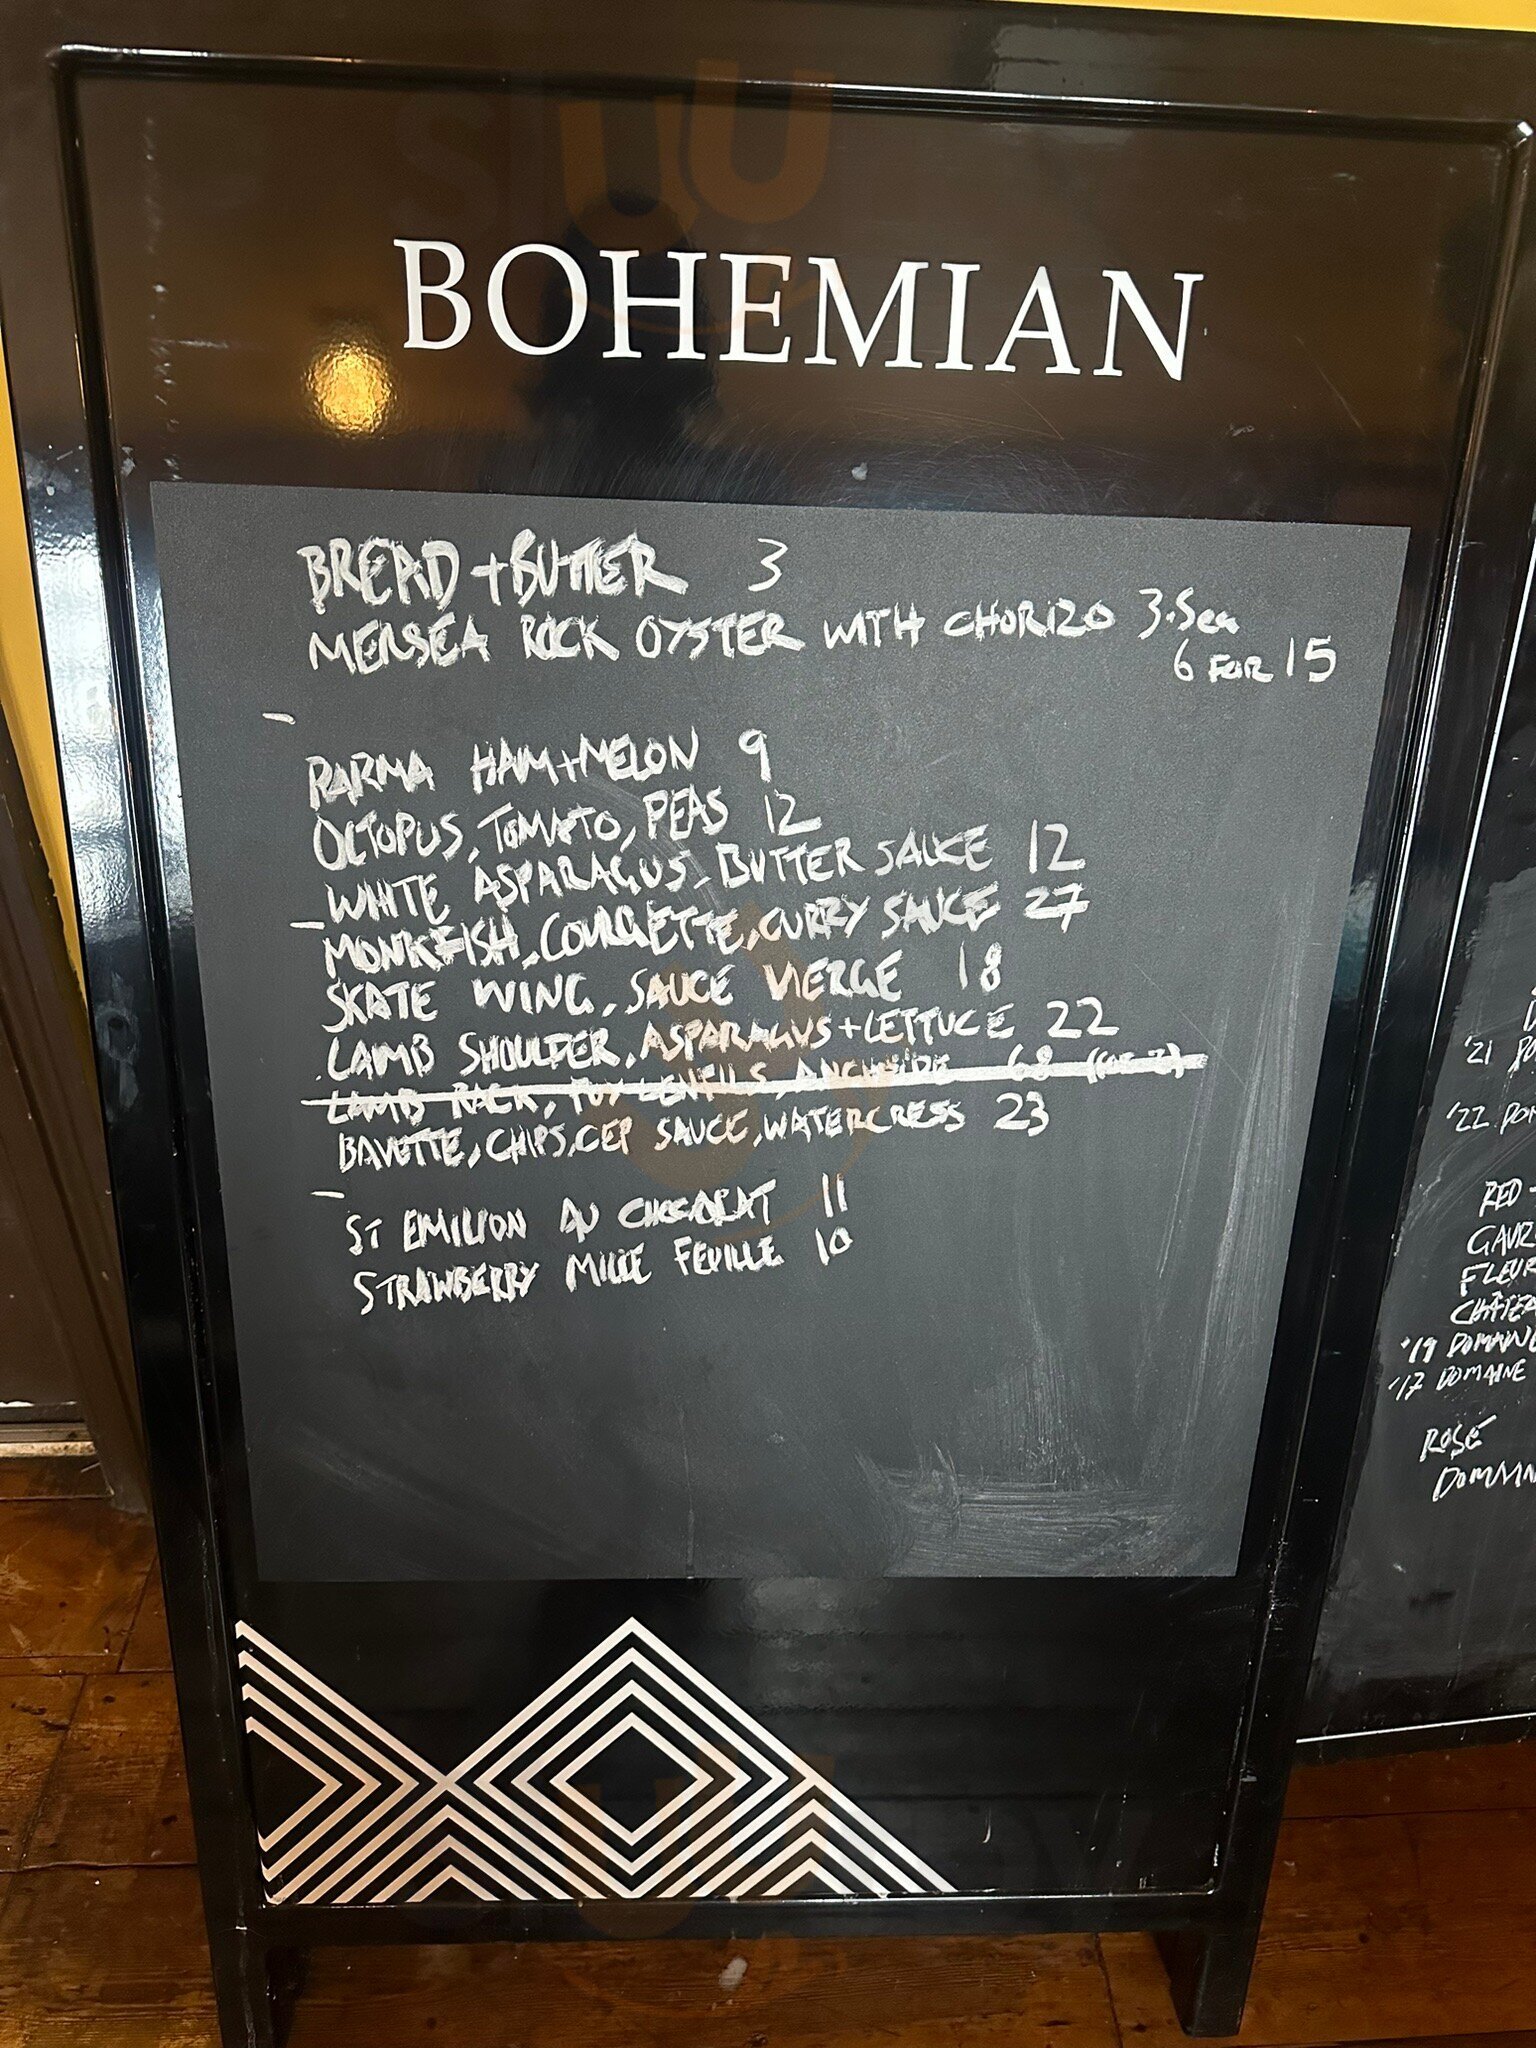 BOHEMIAN
BREAD + BUTTER 3
MERSEA ROCK OYSTER WITH CHORIZO 3.5ea
6 FOR 15
PARMA HAM + MELON 9
OCTOPUS, TOMATO, PEAS 12
WHITE ASPARAGUS, BUTTER SAUCE 12
MONKFISH, COURGETTE, CURRY SAUCE 27
SKATE WING, SAUCE VIERGE 18
LAMB SHOULDER, ASPARAGUS + LETTUCE 22
LAMB RACK, PUY LENTILS, 68 (FOR 2)
BAVETTE, CHIPS, CEP SAUCE, WATERCRESS 23
ST EMILION AU CHOCOLAT 11
STRAWBERRY MILLE FEUILLE 10
'21
'22
RED
FLEUR
'19 DOMAINE
'17 DOMAINE
ROSÉ